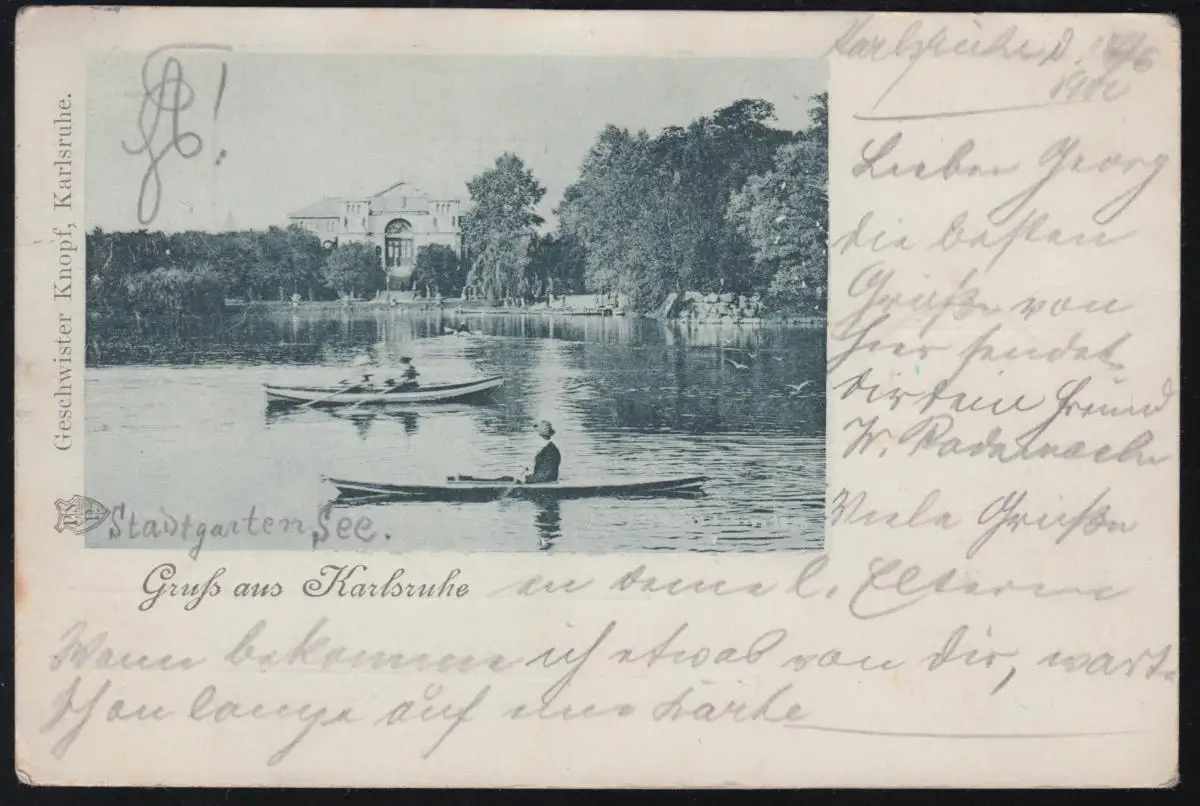 Geschwister Knopf, Karlsruhe.
Karlsruhe d.
Lieber Georg
die besten
Grüße von
hier sendet
dir dein Freund
W. Rademacher
Viele Grüße
an deine l. Eltern
Stadtgarten See.
Gruß aus Karlsruhe
Wann bekomme ich etwas von dir, warte
schon lange auf eine Karte